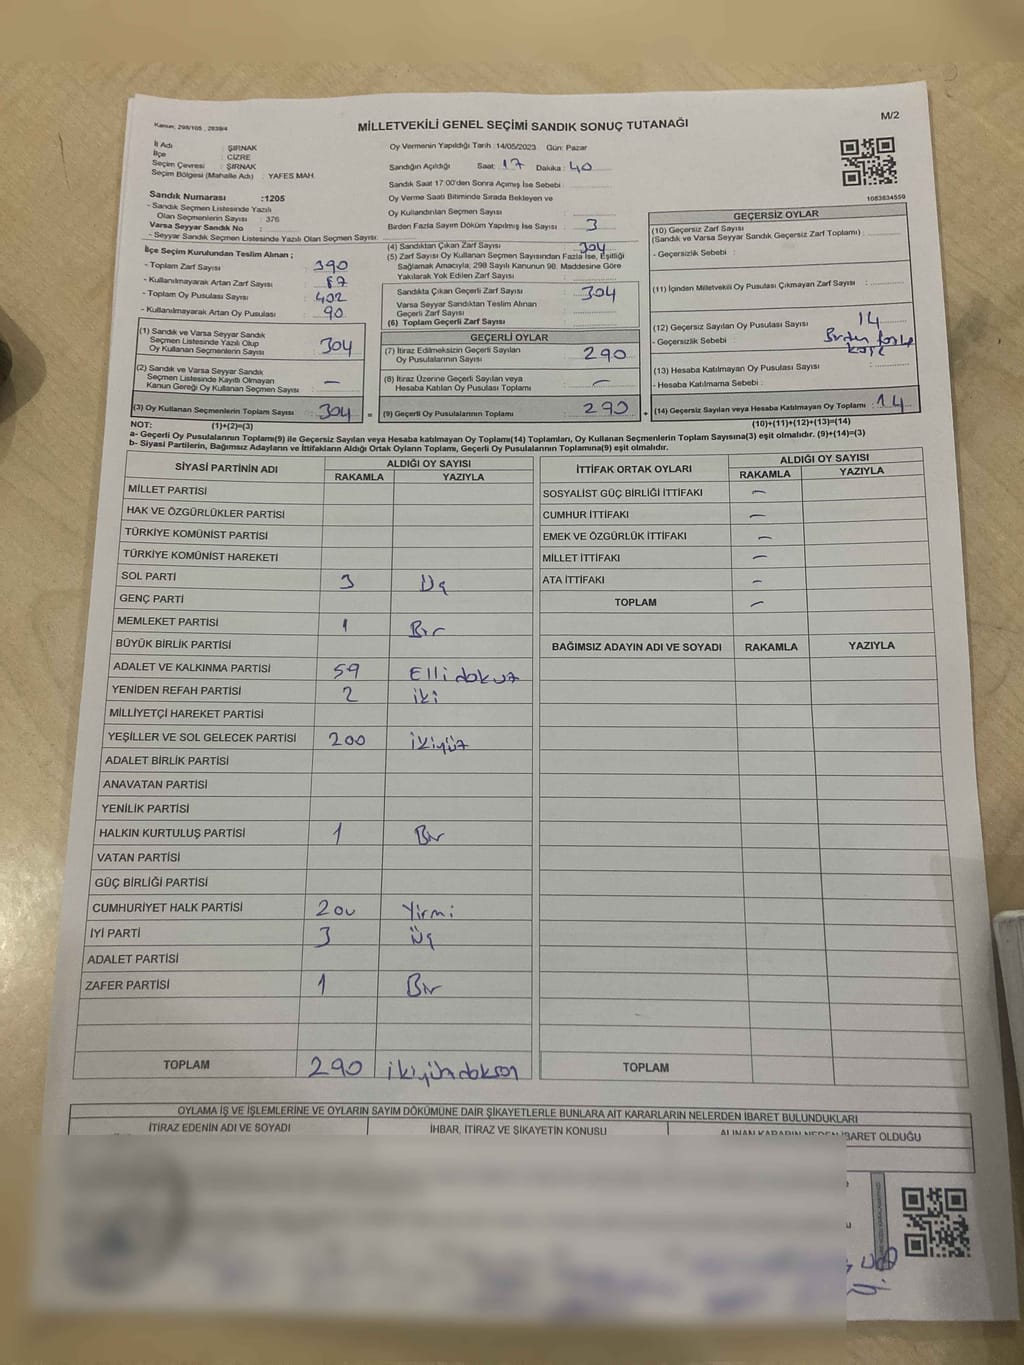 Kanun: 298/105 , 2839/4
MİLLETVEKİLİ GENEL SEÇİMİ SANDIK SONUÇ TUTANAĞI
M/2
İl Adı : ŞIRNAK
İlçe : CİZRE
Seçim Çevresi : ŞIRNAK
Seçim Bölgesi (Mahalle Adı) : YAFES MAH.
Sandık Numarası :1205
- Sandık Seçmen Listesinde Yazılı
Olan Seçmenlerin Sayısı : 376
Varsa Seyyar Sandık No :
- Seyyar Sandık Seçmen Listesinde Yazılı Olan Seçmen Sayısı:
İlçe Seçim Kurulundan Teslim Alınan ;
- Toplam Zarf Sayısı : 390
- Kullanılmayarak Artan Zarf Sayısı : 87
- Toplam Oy Pusulası Sayısı : 402
- Kullanılmayarak Artan Oy Pusulası : 90
(1) Sandık ve Varsa Seyyar Sandık
Seçmen Listesinde Yazılı Olup
Oy Kullanan Seçmenlerin Sayısı : 304
(2) Sandık ve Varsa Seyyar Sandık
Seçmen Listesinde Kayıtlı Olmayan
Kanun Gereği Oy Kullanan Seçmen Sayısı : —
(3) Oy Kullanan Seçmenlerin Toplam Sayısı : 304 =
Oy Vermenin Yapıldığı Tarih :14/05/2023 Gün: Pazar
Sandığın Açıldığı Saat: 17 Dakika : 40
Sandık Saat 17:00'den Sonra Açımış İse Sebebi :
Oy Verme Saati Bitiminde Sırada Bekleyen ve
Oy Kullandırılan Seçmen Sayısı :
Birden Fazla Sayım Döküm Yapılmış İse Sayısı : 3
(4) Sandıktan Çıkan Zarf Sayısı : 304
(5) Zarf Sayısı Oy Kullanan Seçmen Sayısından Fazla İse, Eşitliği
Sağlamak Amacıyla, 298 Sayılı Kanunun 98. Maddesine Göre
Yakılarak Yok Edilen Zarf Sayısı :
Sandıkta Çıkan Geçerli Zarf Sayısı : 304
Varsa Seyyar Sandıktan Teslim Alınan
Geçerli Zarf Sayısı :
(6) Toplam Geçerli Zarf Sayısı :
GEÇERLİ OYLAR
(7) İtiraz Edilmeksizin Geçerli Sayılan
Oy Pusulalarının Sayısı : 290
(8) İtiraz Üzerine Geçerli Sayılan veya
Hesaba Katılan Oy Pusulası Sayısı : —
(9) Geçerli Oy Pusulalarının Toplamı : 290 +
1083634559
GEÇERSİZ OYLAR
(10) Geçersiz Zarf Sayısı
(Sandık ve Varsa Seyyar Sandık Geçersiz Zarf Toplamı) :
- Geçersizlik Sebebi :
(11) İçinden Milletvekili Oy Pusulası Çıkmayan Zarf Sayısı :
(12) Geçersiz Sayılan Oy Pusulası Sayısı : 14
- Geçersizlik Sebebi :
(13) Hesaba Katılmayan Oy Pusulası Sayısı :
- Hesaba Katılmama Sebebi :
(14) Geçersiz Sayılan veya Hesaba Katılmayan Oy Toplamı : 14
NOT: (1)+(2)=(3) (10)+(11)+(12)+(13)=(14)
a- Geçerli Oy Pusulalarının Toplamı(9) ile Geçersiz Sayılan veya Hesaba katılmayan Oy Toplamı(14) Toplamları, Oy Kullanan Seçmenlerin Toplam Sayısına(3) eşit olmalıdır. (9)+(14)=(3)
b- Siyasi Partilerin, Bağımsız Adayların ve İttifakların Aldığı Ortak Oyların Toplamı, Geçerli Oy Pusulalarının Toplamına(9) eşit olmalıdır.
SİYASİ PARTİNİN ADI ALDIĞI OY SAYISI
RAKAMLA YAZIYLA
MİLLET PARTİSİ
HAK VE ÖZGÜRLÜKLER PARTİSİ
TÜRKİYE KOMÜNİST PARTİSİ
TÜRKİYE KOMÜNİST HAREKETİ
SOL PARTİ 3 Üç
GENÇ PARTİ
MEMLEKET PARTİSİ 1 Bir
BÜYÜK BİRLİK PARTİSİ
ADALET VE KALKINMA PARTİSİ 59 Elli dokuz
YENİDEN REFAH PARTİSİ 2 iki
MİLLİYETÇİ HAREKET PARTİSİ
YEŞİLLER VE SOL GELECEK PARTİSİ 200 ikiyüz
ADALET BİRLİK PARTİSİ
ANAVATAN PARTİSİ
YENİLİK PARTİSİ
HALKIN KURTULUŞ PARTİSİ 1 Bir
VATAN PARTİSİ
GÜÇ BİRLİĞİ PARTİSİ
CUMHURİYET HALK PARTİSİ Yirmi
İYİ PARTİ 3 Üç
ADALET PARTİSİ
ZAFER PARTİSİ 1 Bir
TOPLAM 290 ikiyüzdoksan
İTTİFAK ORTAK OYLARI ALDIĞI OY SAYISI
RAKAMLA YAZIYLA
SOSYALİST GÜÇ BİRLİĞİ İTTİFAKI —
CUMHUR İTTİFAKI —
EMEK VE ÖZGÜRLÜK İTTİFAKI —
MİLLET İTTİFAKI —
ATA İTTİFAKI —
TOPLAM —
BAĞIMSIZ ADAYIN ADI VE SOYADI RAKAMLA YAZIYLA
TOPLAM
OYLAMA İŞ VE İŞLEMLERİNE VE OYLARIN SAYIM DÖKÜMÜNE DAİR ŞİKAYETLERLE BUNLARA AİT KARARLARIN NELERDEN İBARET BULUNDUKLARI
İTİRAZ EDENİN ADI VE SOYADI İHBAR, İTİRAZ VE ŞİKAYETİN KONUSU ALINAN KARARIN NEDEN İBARET OLDUĞU